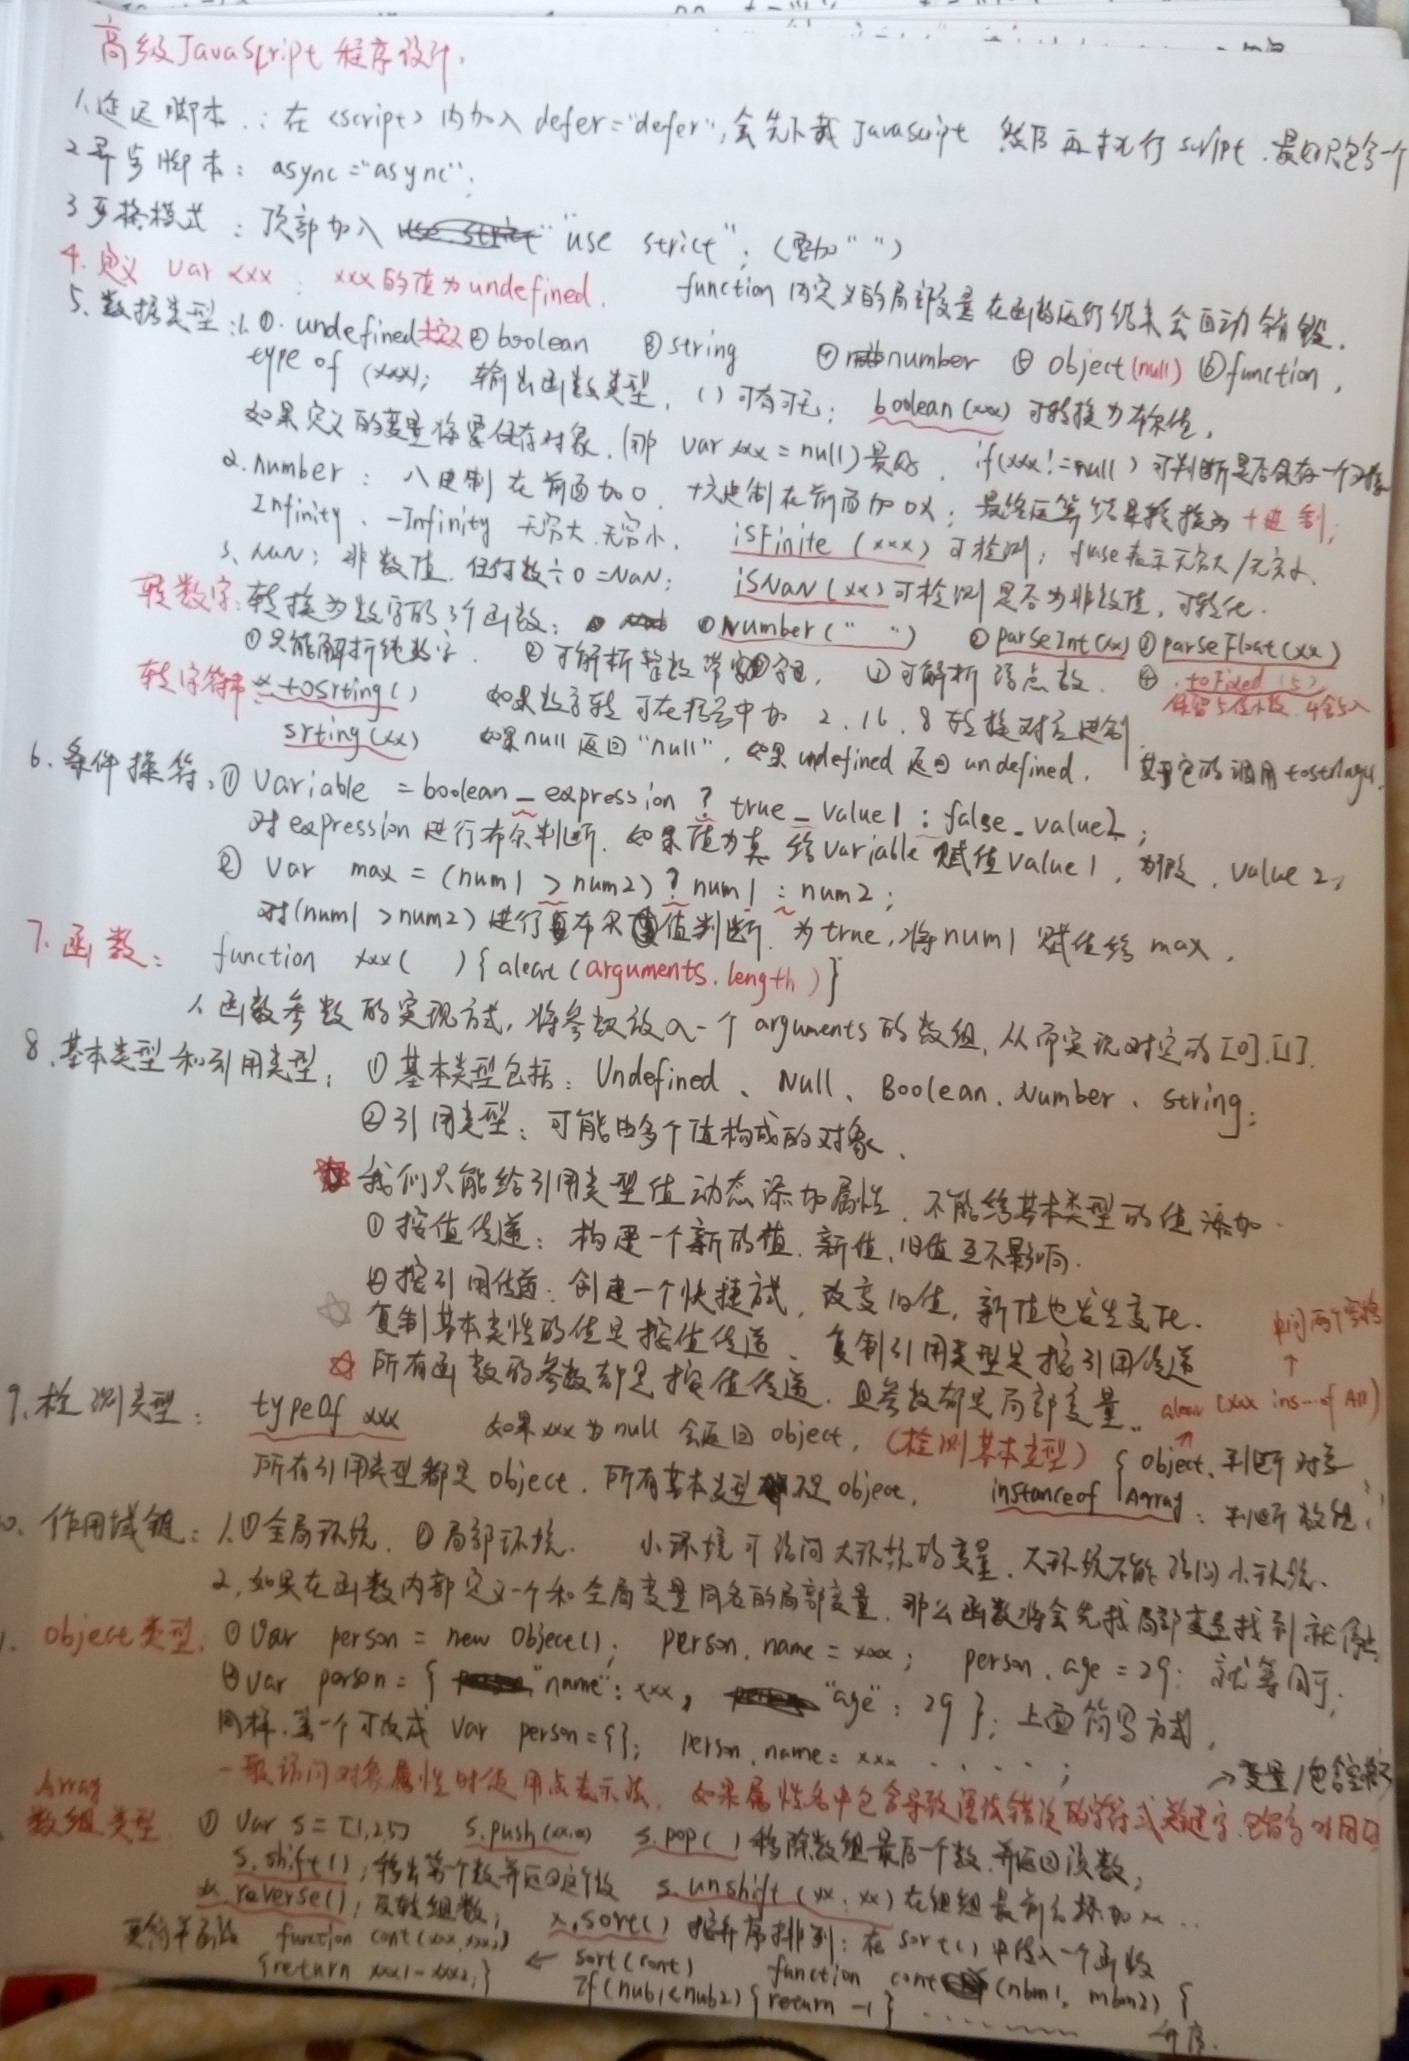 高级JavaScript 程序设计.
1.延迟脚本.: 在<script>内加入defer="defer",会先下载Javascript 然后再执行script.最好只包含一个
2异步脚本: async="async";
3严格模式: 顶部加入 "use strict"; (要加" ")
4.定义 var xxx; xxx的值为undefined. function内定义的局部变量在函数运行结束会自动销毁.
5.数据类型:1.①.undefined未定义②boolean ③string ④number ⑤object(null) ⑥function,
type of (xxx); 输出函数类型.()可有可无; boolean(xxx)可转换为布尔值,
如果定义的变量将要保存对象.(那 var xxx=null)最好. if(xxx!=null)可判断是否保存一个对象
2.number: 八进制在前面加0. 十六进制在前面加0x; 最终运算结果转换为十进制;
Infinity、-Infinity 无穷大.无穷小. isFinite(xxx)可检测; false表示无穷大/无穷小.
3.NaN: 非数值.任何数÷0=NaN; isNaN(xx)可检测是否为非数值,可转化.
转数字:转换为数字的3个函数: ①Number(" ") ②parseInt(xx)③parseFloat(xx)
①只能解析纯数字. ②可解析整数带字母. ③可解析浮点数. ④.toFixed(5)
保留5位小数.4舍5入
转字符串 x.tosrting() 如果数字转 可在括号中加 2.16.8转换对应进制
srting(xx) 如果null返回"null", 如果undefined返回undefined. 其它的调用
6.条件操符:①variable =boolean_expression ? true_value1 : false_value2;
对expression进行布尔判断.如果值为真 给variable赋值value1, 为假.value2;
② var max = (num1 >num2) ? num1 : num2;
对(num1 >num2) 进行布尔值判断.为true,将num1 赋值给 max.
7.函数: function xxx( ){aleart(arguments.length)}
1.函数参数的实现方式,将参数放入一个arguments的数组,从而实现对应的[0].[1].
8.基本类型和引用类型: ①基本类型包括: Undefined、Null、Boolean.Number、string;
②引用类型: 可能由多个值构成的对象.
我们只能给引用类型值动态添加属性.不能给基本类型的值添加.
①按值传递: 构建一个新的值.新值,旧值互不影响.
②按引用传递: 创建一个快捷方式, 改变旧值, 新值也发生变化.
☆ 复制基本类性的值是按值传递、复制引用类型是按引用传递
☆ 所有函数的参数都是按值传递.且参数都是局部变量.
中间两个空格
↑
9.检测类型: typeof xxx 如果xxx为null会返回object,(检测基本类型) { object.判断对象
alear(xxx ins...of All)
所有引用类型都是object.所有基本类型不是object. instanceof Array: 判断数组;
作用域链: 1.①全局环境.②局部环境. 小环境可访问大环境的变量.大环境不能访问小环境.
2.如果在函数内部定义一个和全局变量同名的局部变量.那么函数将会先找局部变量找到就停止
object类型: ①var person = new object(); person.name = xxx; person.age = 29; 就等同于;
②var person = { "name": xxx, "age": 29 }; 上面简写方式,
同样.第一个可改成 var person={}; person.name= xxx . . . . . ;
一般访问对象属性时使用点表示法. 如果属性名中包含导致语法错误的字符或关键字.
→变量/包含空格
Array
数组类型. ① var s=[1,2,5] s.push(xx.x) s.pop( )移除数组最后一个数.并返回该数;
s.shift(); 移出第一个数并返回这个数 s.unshift(xx.xx)在组组最前方添加xx...
x.reverse(); 反转组数; x.sort() 按升序排列: 在sort()中传入一个函数
更简单函数 function cont(xxx,xxx2) ← sort(cont) function cont (nbm1, mbm2) {
{return xxx1-xxx2;} If(nub1<nub2){return -1} .........
升序.